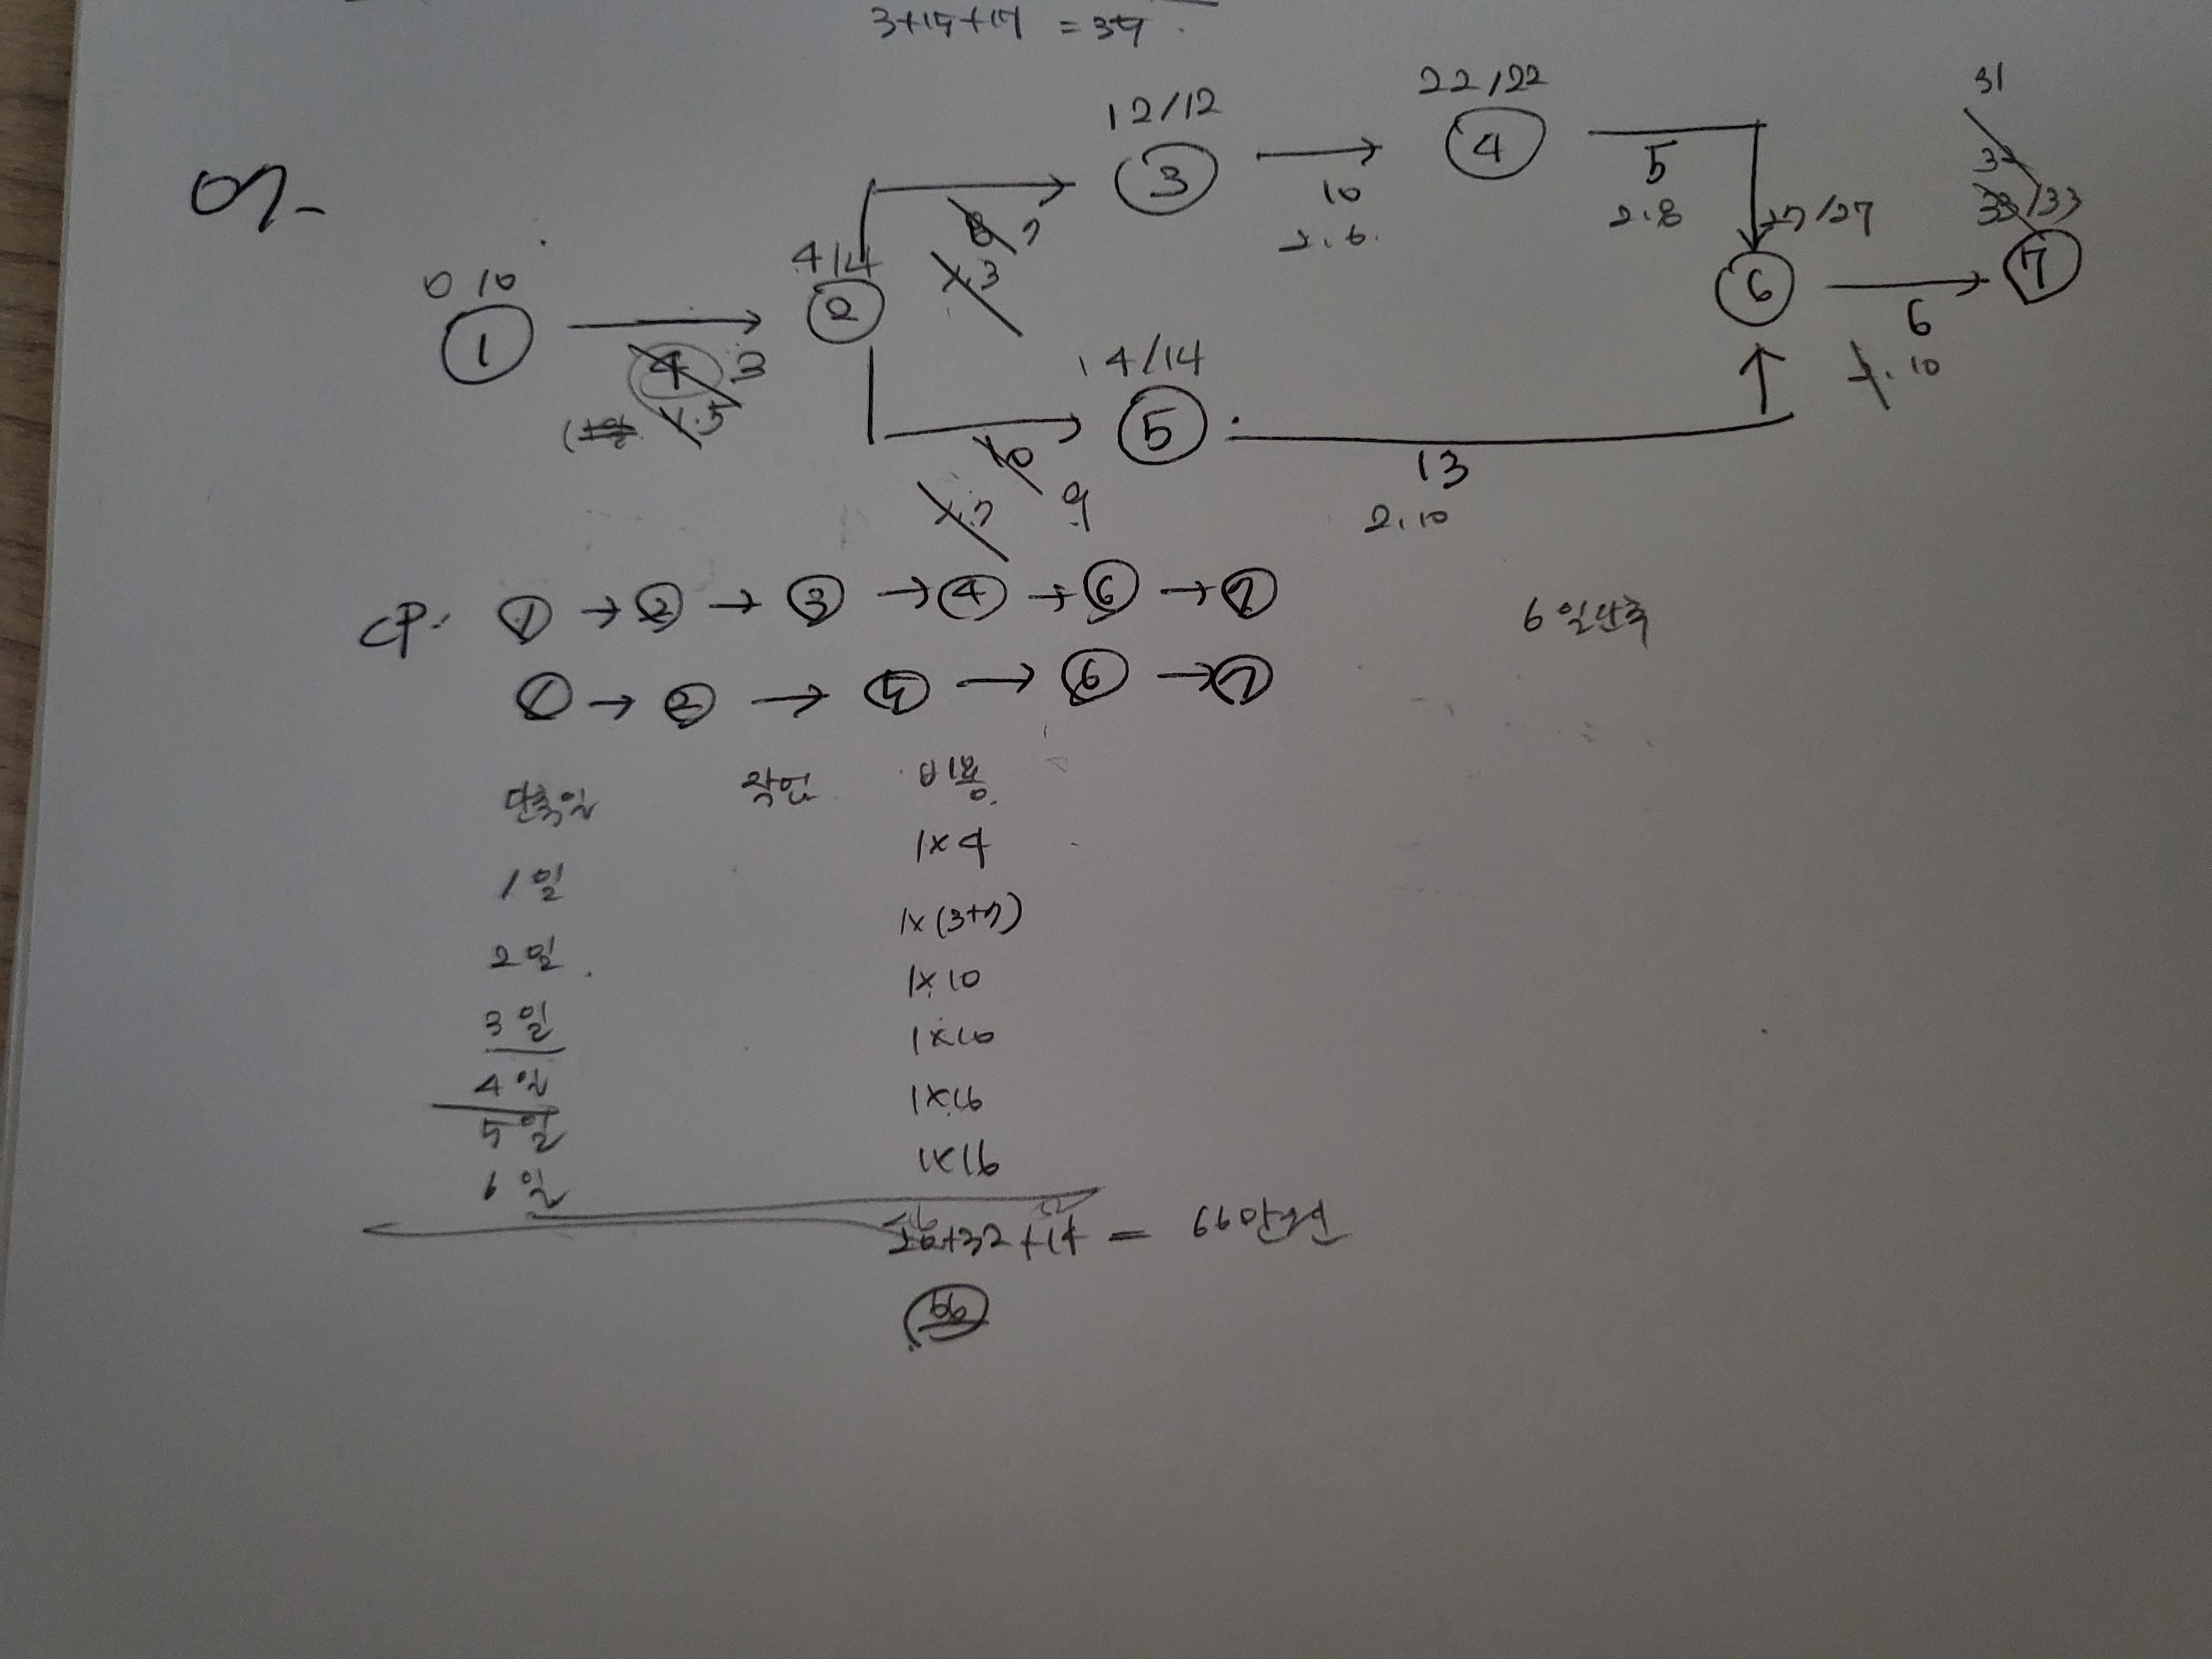 3+15+17 = 35.
31
22/22
12/12
3 4
10
5
7
2.6.
2.8
33/33
27/27
4/4
0/0
1 2 6 7
3
6
10
14/14
5
10
9
13
2.10
CP. 1 → 2 → 3 → 4 → 6 → 7
6일단축
1 → 2 → 5 → 6 → 7
단축일 작업 비용
1일 1×4
2일 1×(3+7)
3일 1×10
4일 1×10
5일 1×16
6일 1×16
= 66만원
66